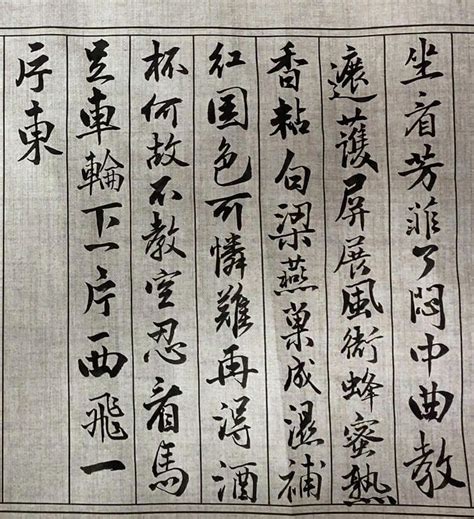 坐看芳菲了悶中曲教
遮護屏展風衙蜂蜜熟
香粘白梁燕巢成濕補
红国色可憐難再得酒
杯何故不教空忍看馬
足車輪下一片西飛一
片東